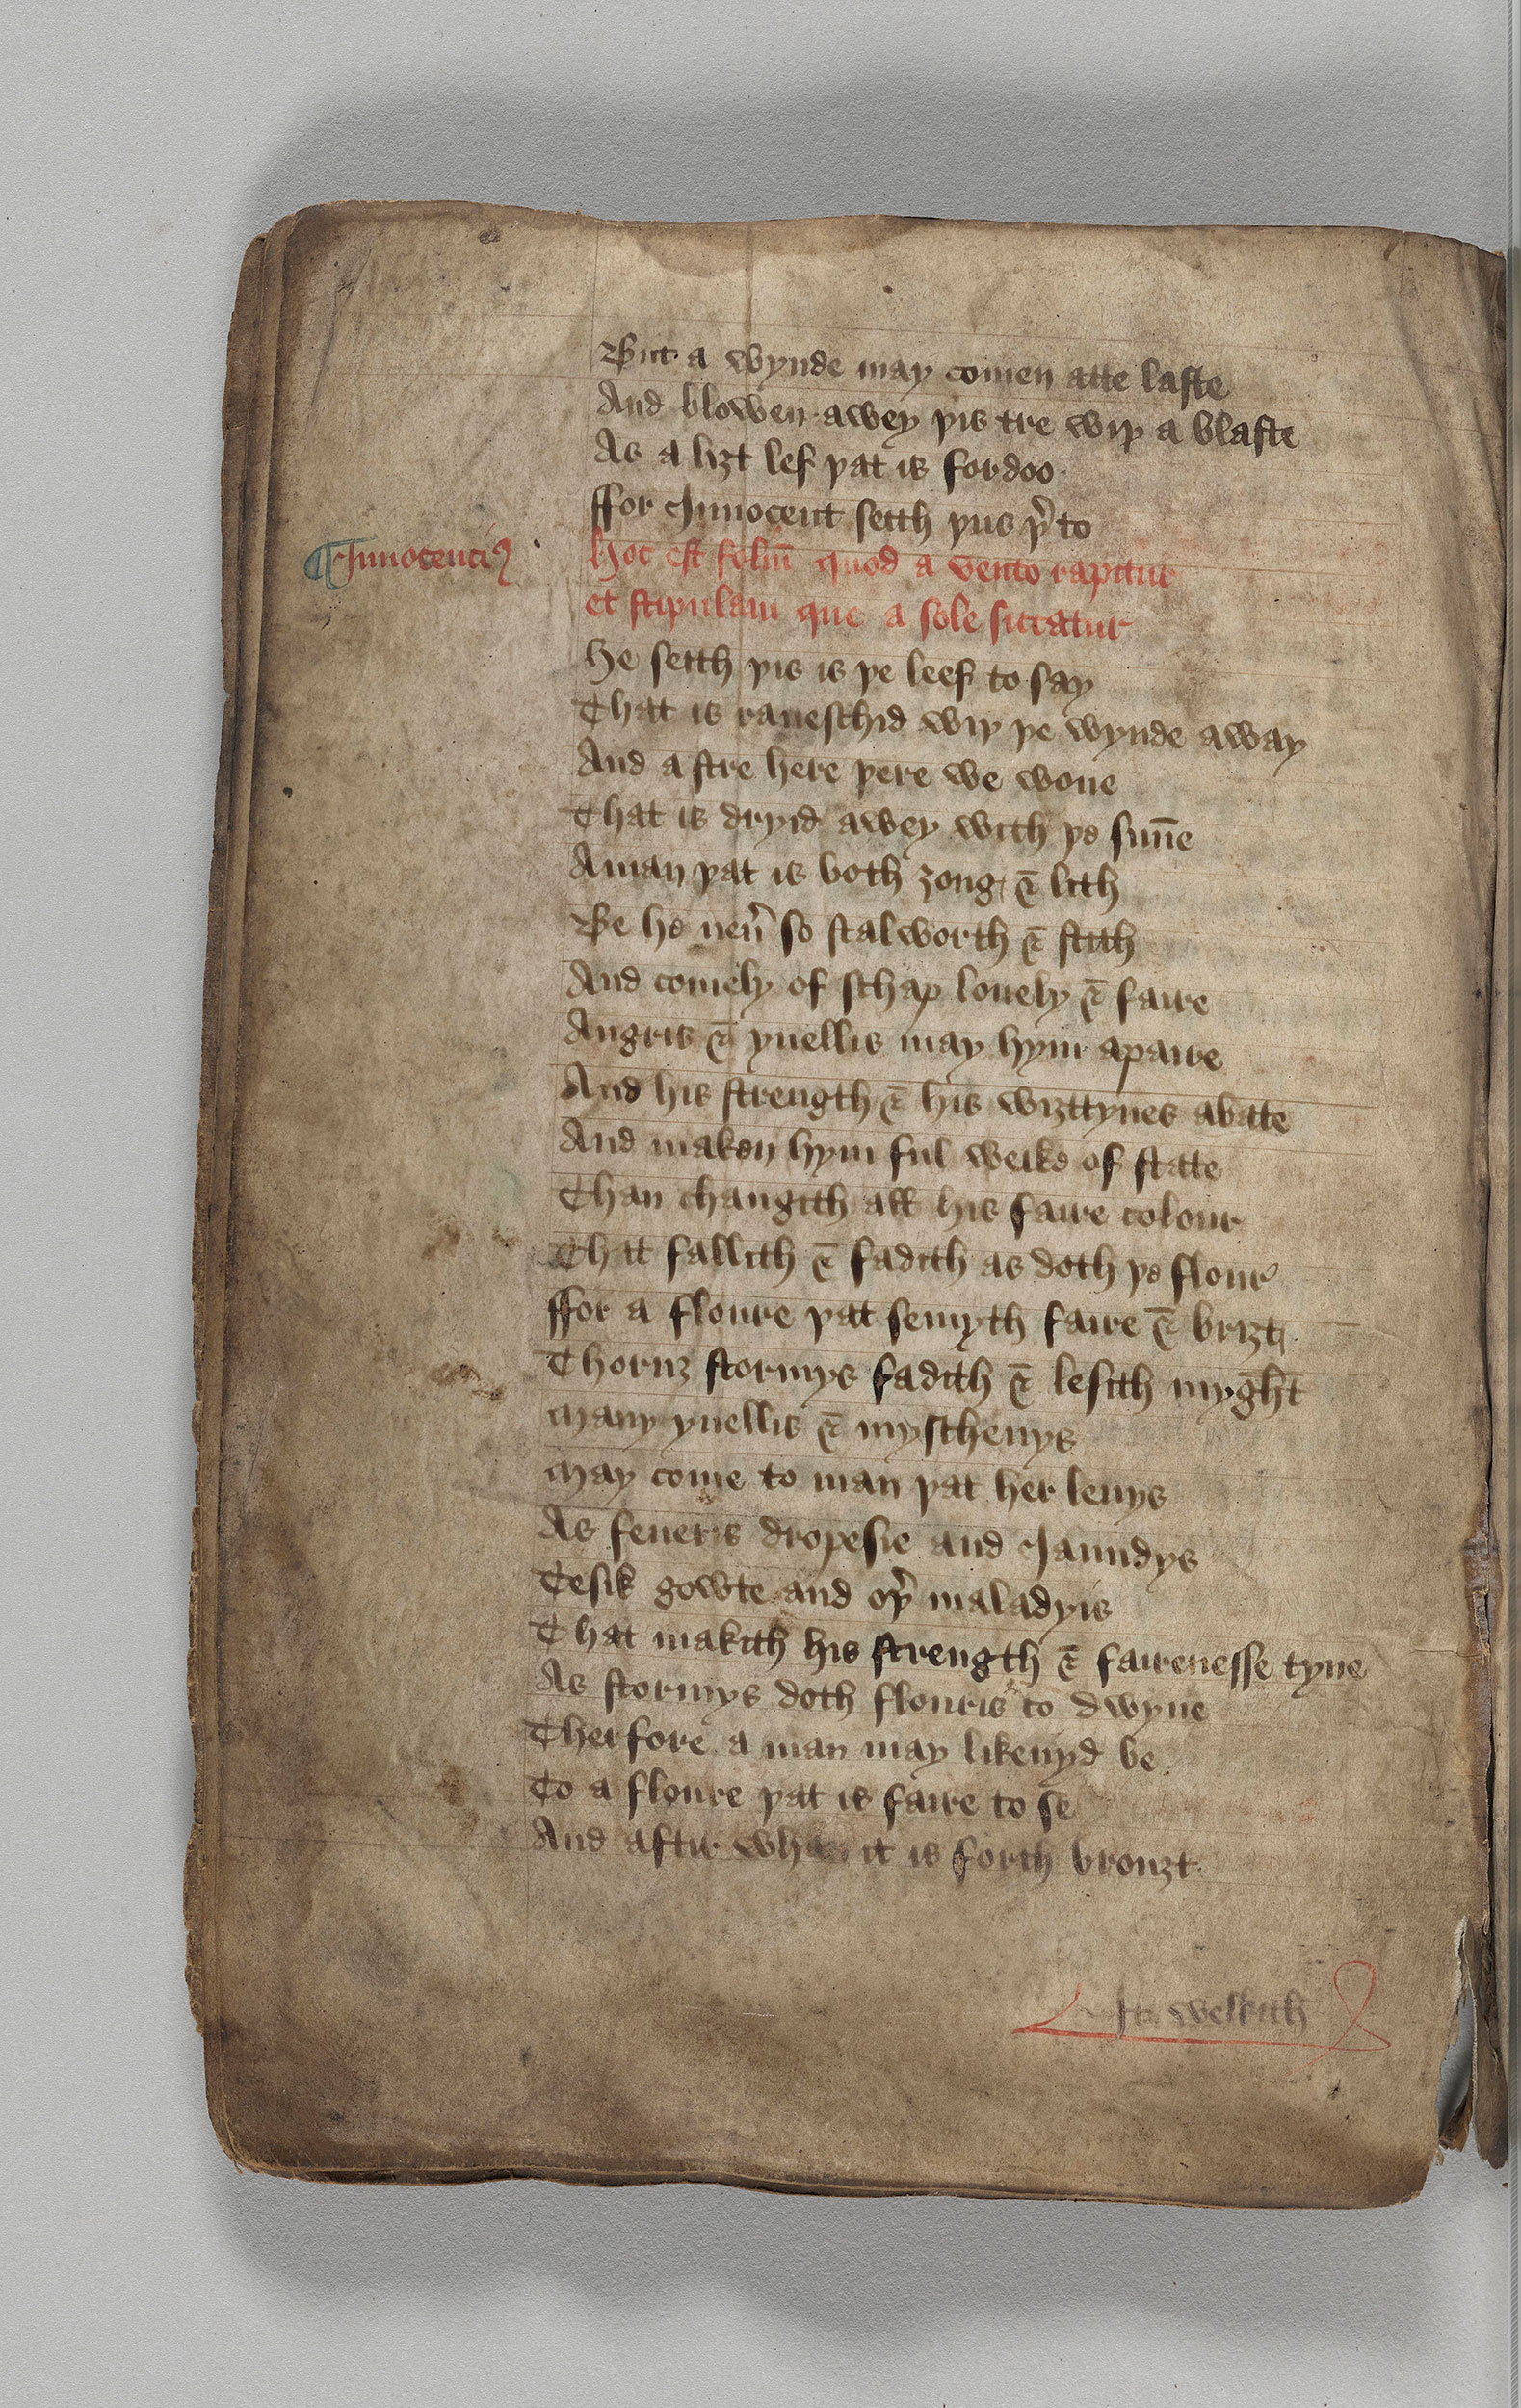 But a wynde may comen atte laste
And blowen awey þis tre wiþ a blaste
As a liȝt lef þat is fordoo
ffor Innocent seith þus þ'to
¶Innocenciꝰ
hoc est foliū quod a vento rapitur
et stipulam que a sole siccatur
he seith þis is þe leef to say
That is raueschid wiþ þe wynde away
And a stre here þere we wone
That is dryid awey with þe sun̄e
A man þat is both ȝong ⁊ lith
Be he neu' so stalworth ⁊ stith
And comely of schap louely ⁊ faire
Angris ⁊ yuellis may hym apaire
And his strength ⁊ his wiȝttynes abate
And maken hym ful weike of state
Than changith all his faire colour
That fallith ⁊ fadith as doth þe flour
ffor a floure þat semyth faire ⁊ briȝt
Thoruȝ stormys fadith ⁊ lesith myght
Many yuellis ⁊ myscheuys
May come to man þat her leuys
As feueris dropesie and Jaundys
Tesik gowte and oþ' maladyis
That makith his strength ⁊ fairenesse tyne
As stormys doth flouris to dwyne
Therfore a man may likenyd be
To a floure þat is faire to se
And aftir whan it is forth brouȝt
It welkith